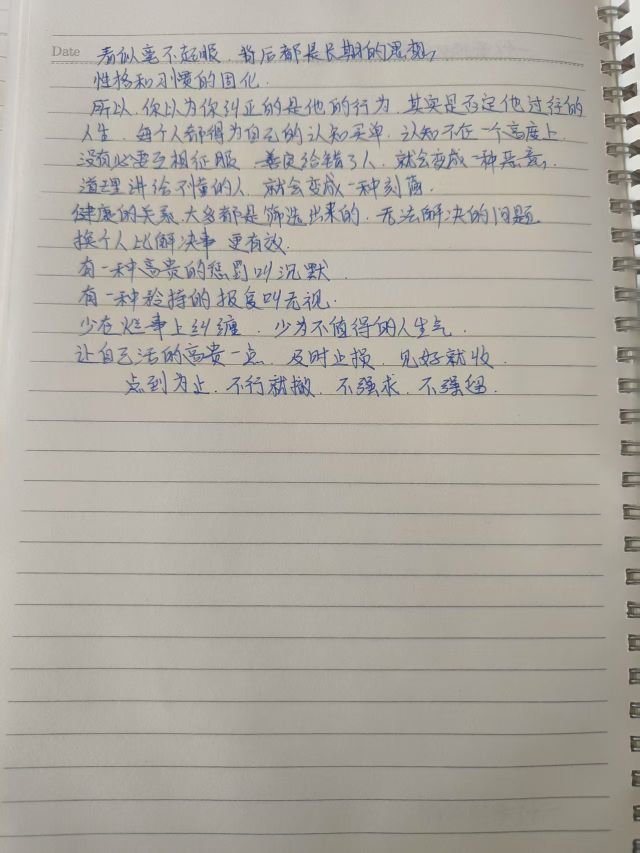 Date
看似毫不起眼，背后都是长期的思想，
性格和习惯的固化.
所以,你以为你纠正的是他的行为,其实是否定他过往的
人生,每个人都得为自己的认知买单,认知不在一个高度上
没有必要互相征服,善良给错了人,就会变成一种恶意,
道理讲给不懂的人,就会变成一种刻薄.
健康的关系,大多都是筛选出来的,无法解决的问题
换个人比解决事更有效.
有一种高贵的惩罚叫沉默.
有一种矜持的报复叫无视.
少在烂事上纠缠,少为不值得的人生气.
让自己活的高贵一点,及时止损,见好就收.
点到为止,不行就撤,不强求,不强留.